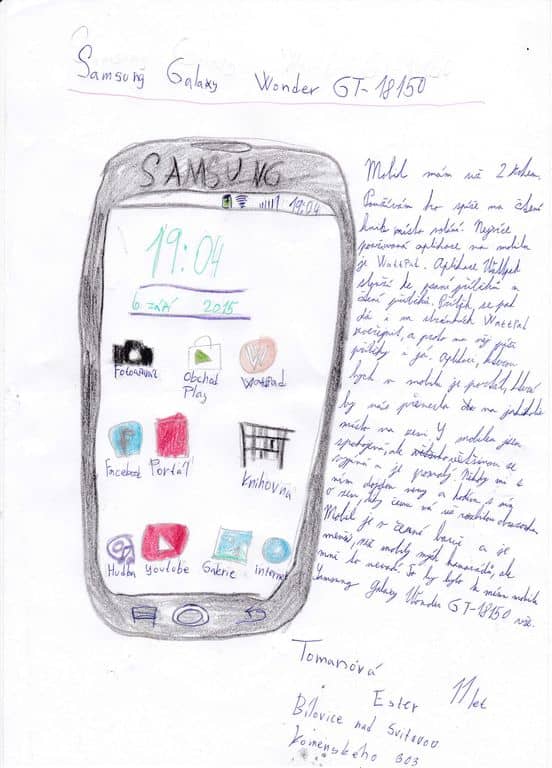 Samsung Galaxy Wonder GT-I8150
SAMSUNG
19:04
19:04
6 září 2015
Fotoaparát
Obchod
Play
WattPad
Facebook Portál
Knihovna
Hudba Youtube Galérie internet
Mobil mám už 2 rokem.
Používám ho spíše na čtení
knih místo volání. Nejvíce
používaná aplikace na mobilu
je WattPad. Aplikace WattPad
slouží ke psaní příběhů a
čtení příběhů. Příběh se pak
dá i na stránkách WattPad
zveřejnit, a proto na něj píšu
příběhy i já. Aplikaci, kterou
bych v mobilu je portál, který
by nás přenesla do na jakékoliv
místo na zemi. S mobilem jsem
spokojená, ale většinou se
vypíná a je pomalý. Někdy mi s
ním dojdou nervy a hodím s ním
o zem, díky čemu má už rozbitou obrazovku.
Mobil je v černé barvě a je
menší, než mobily mých kamarádů, ale
mně to nevadí. To by bylo k mému mobilu
Samsung Galaxy Wonder GT-I8150 vše.
Tomanová
Ester 11 let
Bílovice nad Svitavou
Komenského 303